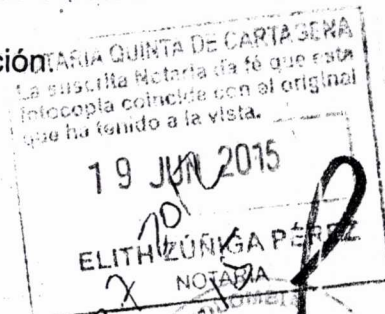 ción.
NOTARIA QUINTA DE CARTAGENA
La suscrita Notaria da fé que esta
fotocopia coincide con el original
que ha tenido a la vista.
19 JUN 2015
ELITH ZÚÑIGA PÉREZ
NOTARIA